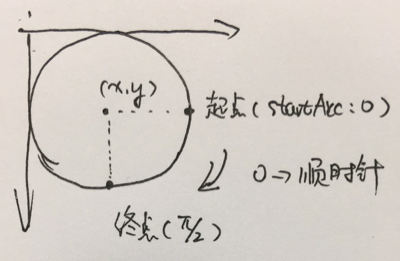 (x,y)
起点(startArc:0)
0→顺时针
终点(π/2)